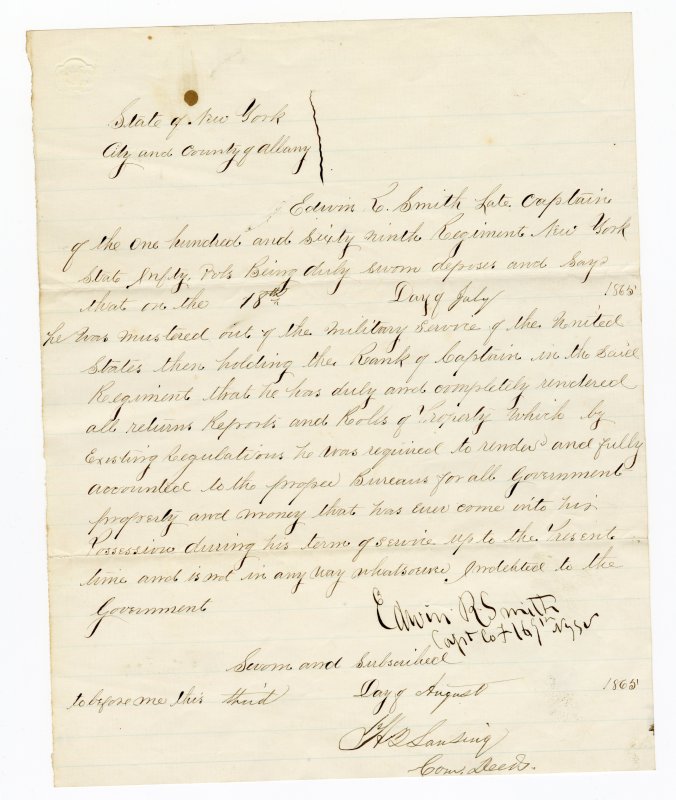 State of New York
City and County of Albany
Edwin R. Smith Late Captain
of the One hundred and Sixty Ninth Regiment New York
State Infty Vols Being duly sworn deposes and Says
that on the 18th Day of July 1865
he was mustered out of the military service of the United
States then holding the Rank of Captain in the Said
Regiment that he has duly and completely rendered
all returns Reports and Rolls of Property which by
Existing Regulations he was required to render and fully
accounted to the proper Bureaus for all Government
property and money that has ever come into his
Possession during his term of service up to the Present
time and is not in any way whatsoever Indebted to the
Government
Edwin R. Smith
Capt Co 169th
Sworn and Subscribed
to before me this third Day of August 1865
Lansing
Coms Deeds.